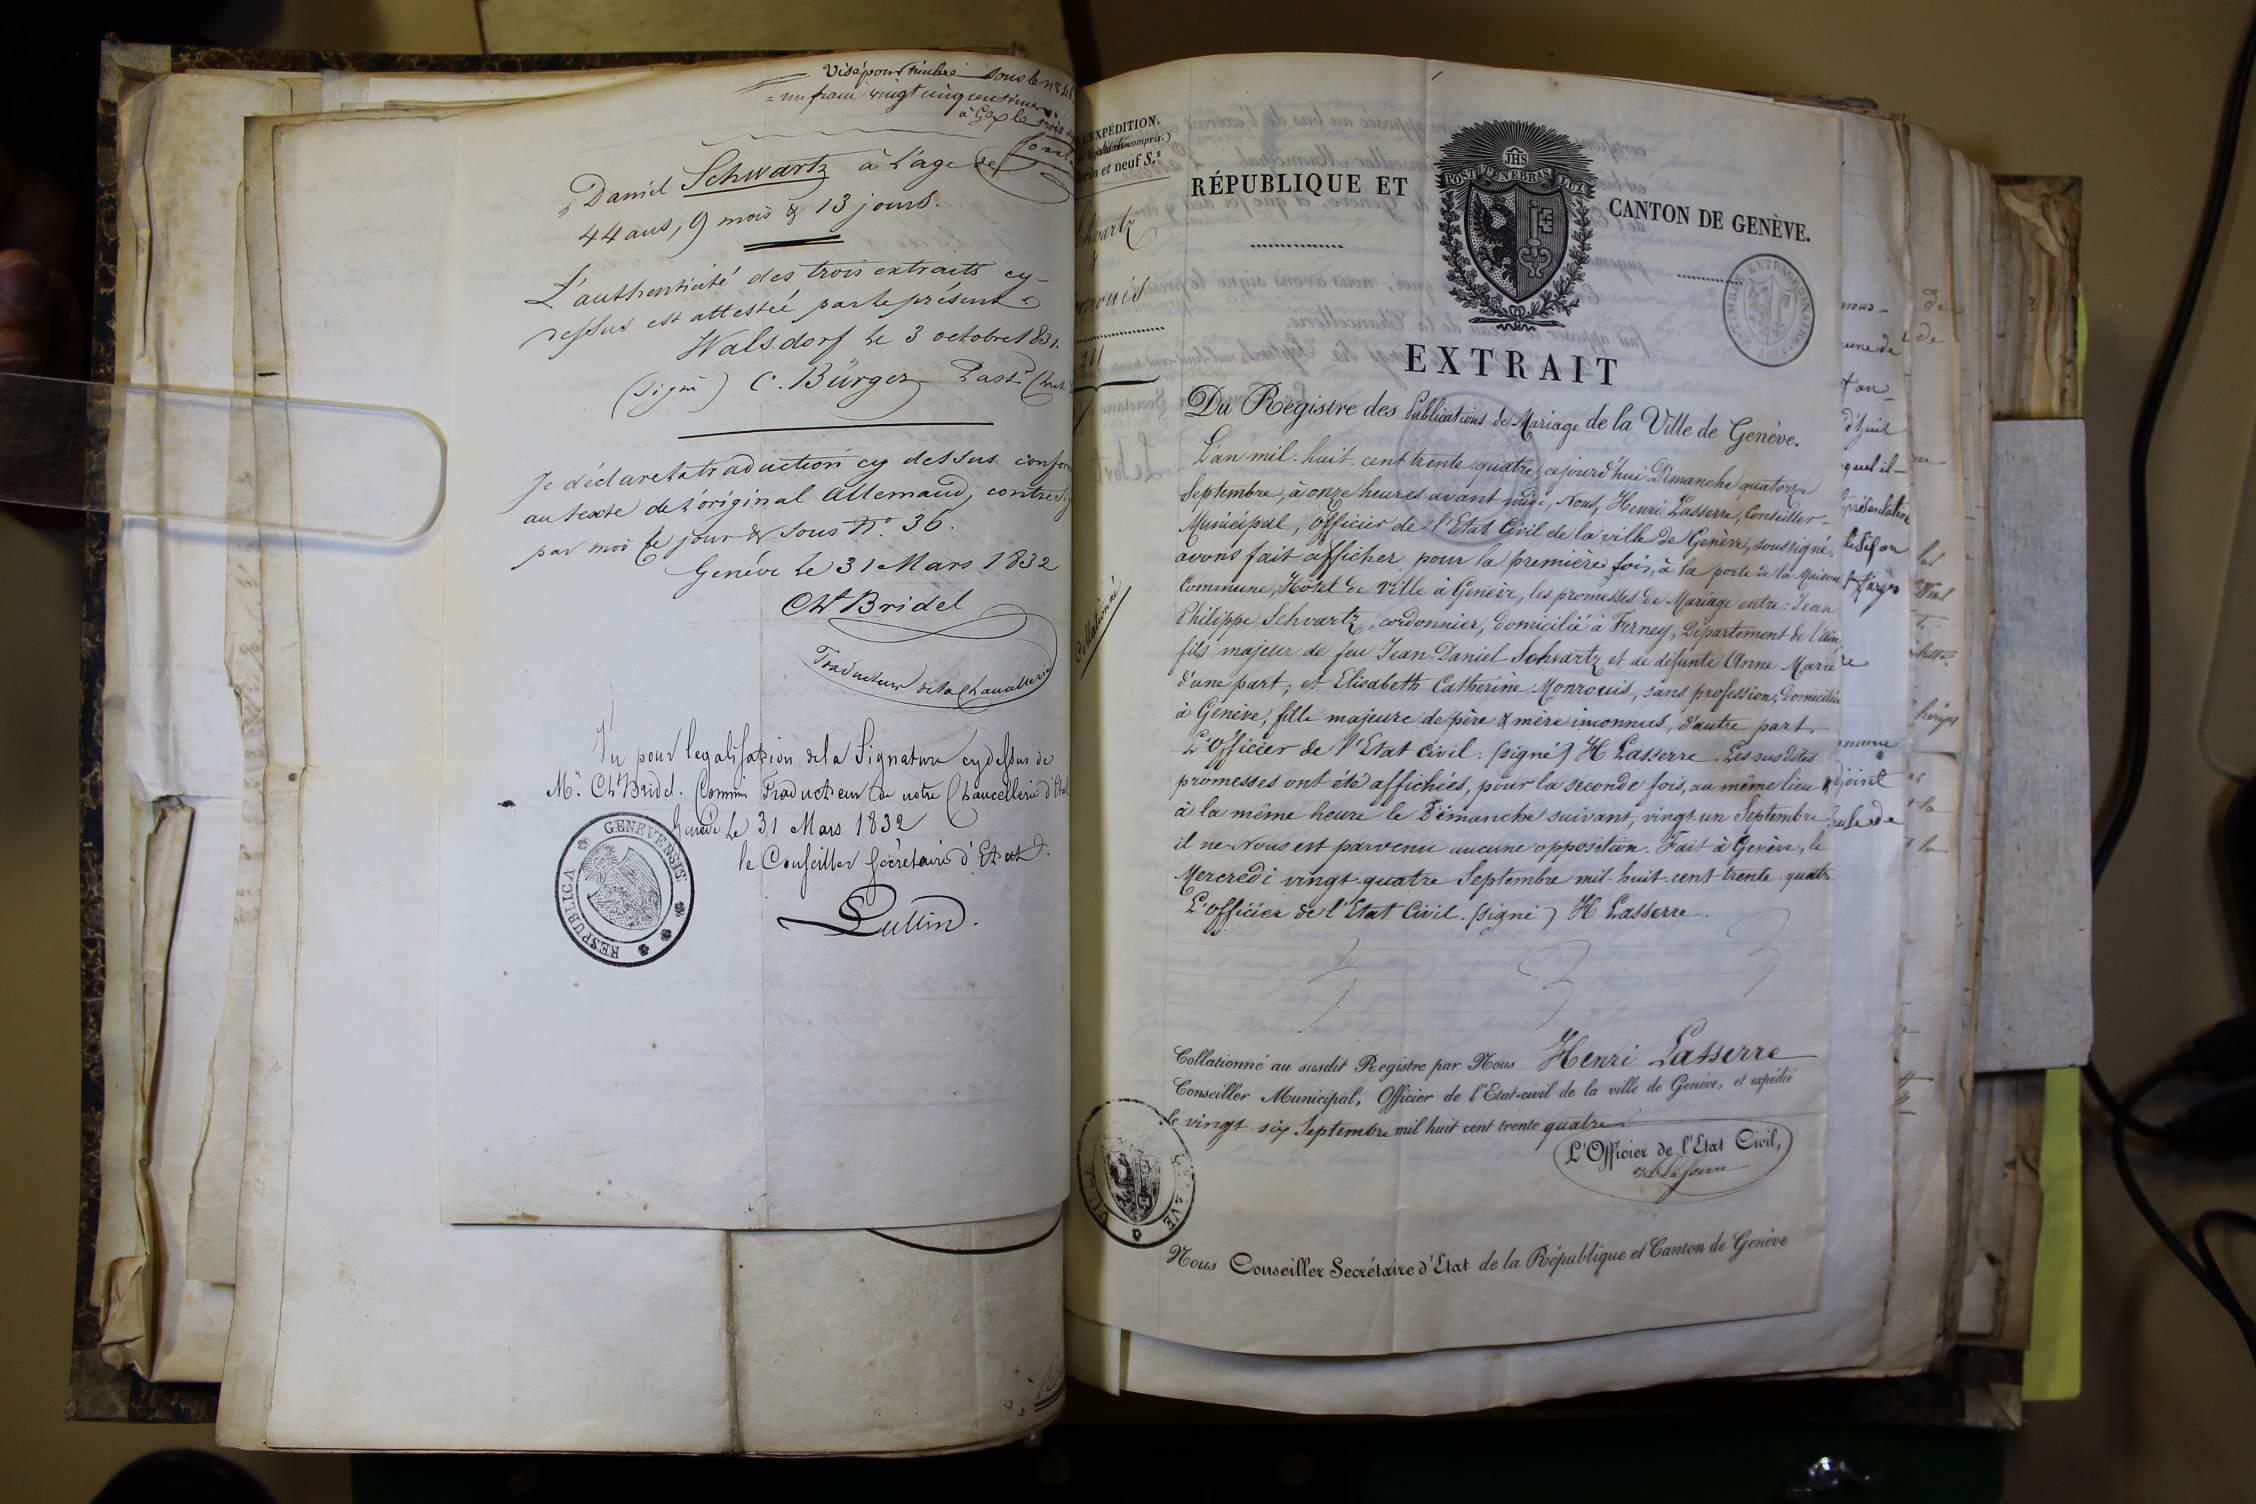 Visé pour timbre sous le n°
un franc vingt cinq centimes
à Gex le
Daniel Schwartz à l'age de
44 ans, 9 mois & 13 jours.
L'authenticité des trois extraits cy-
dessus est attestée par le présent
Walsdorf le 3 octobre 1831.
(signé) C. Bürger Past.
Je déclare la traduction cy dessus conforme
au texte de l'original Allemand, contresigné
par moi ce jour & sous N°. 36.
Genève le 31 Mars 1832
Ch. Bridel
Traducteur de la Chancellerie
Vu pour legalisation de la Signature cy dessus de
Mr. Ch. Bridel. Commis Traducteur de notre Chancellerie d'Etat
Genève le 31 Mars 1832
le Conseiller Secrétaire d'Etat.
Lullin.
RESPUBLICA GENEVENSIS
EXPÉDITION.
compris.)
et neuf S.s
hvartz
&
onrouis
211
Collationné
RÉPUBLIQUE ET CANTON DE GENÈVE.
POST TENEBRAS LUX
JHS
TIMBRE EXTRAORDINAIRE
EXTRAIT
Du Registre des Publications de Mariage de la Ville de Genève.
L'an mil-huit-cent trente-quatre, cejourd'hui Dimanche quatorze
Septembre, à onze heures avant midi, Nous, Henri Lasserre, Conseiller
Municipal, Officier de l'Etat Civil de la ville de Genève, soussigné,
avons fait afficher, pour la première fois, à la porte de la Maison
Commune, Hôtel de Ville à Genève, les promesses de Mariage entre: Jean
Philippe Schvartz, cordonnier, domicilié à Ferney, Département de l'Ain,
fils majeur de feu Jean-Daniel Schvartz et de défunte Anne Marie
d'une part; et Elisabeth Catherine Monrouis, sans profession, domiciliée
à Genève, fille majeure de père & mère inconnus, d'autre part.
L'Officier de l'Etat Civil: (signé) H Lasserre. Les susdites
promesses ont été affichées, pour la seconde fois, au même lieu &
à la même heure le Dimanche suivant, vingt-un Septembre
il ne Nous est parvenu aucune opposition. Fait à Genève, le
Mercredi vingt-quatre Septembre mil-huit-cent trente-quatre
L'Officier de l'Etat Civil. (signé) H Lasserre.
Collationné au susdit Registre par Nous Henri Lasserre
Conseiller Municipal, Officier de l'Etat-civil de la ville de Genève, et expédié
le vingt six Septembre mil huit cent trente quatre
L'Officier de l'Etat Civil,
H Lasserre
VILLE GENÈVE
Nous Conseiller Secrétaire d'Etat de la République et Canton de Genève